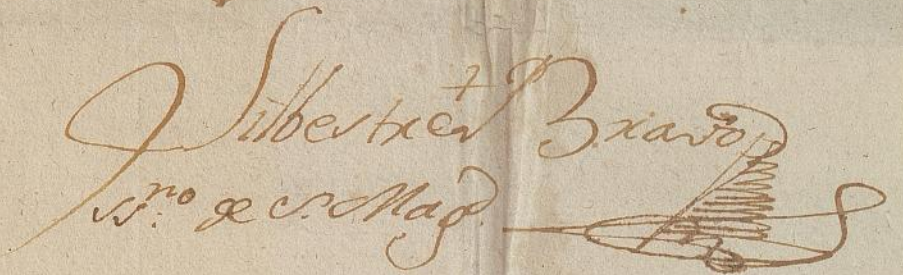 Silbestre Bravo
ss.no de S. Magd.